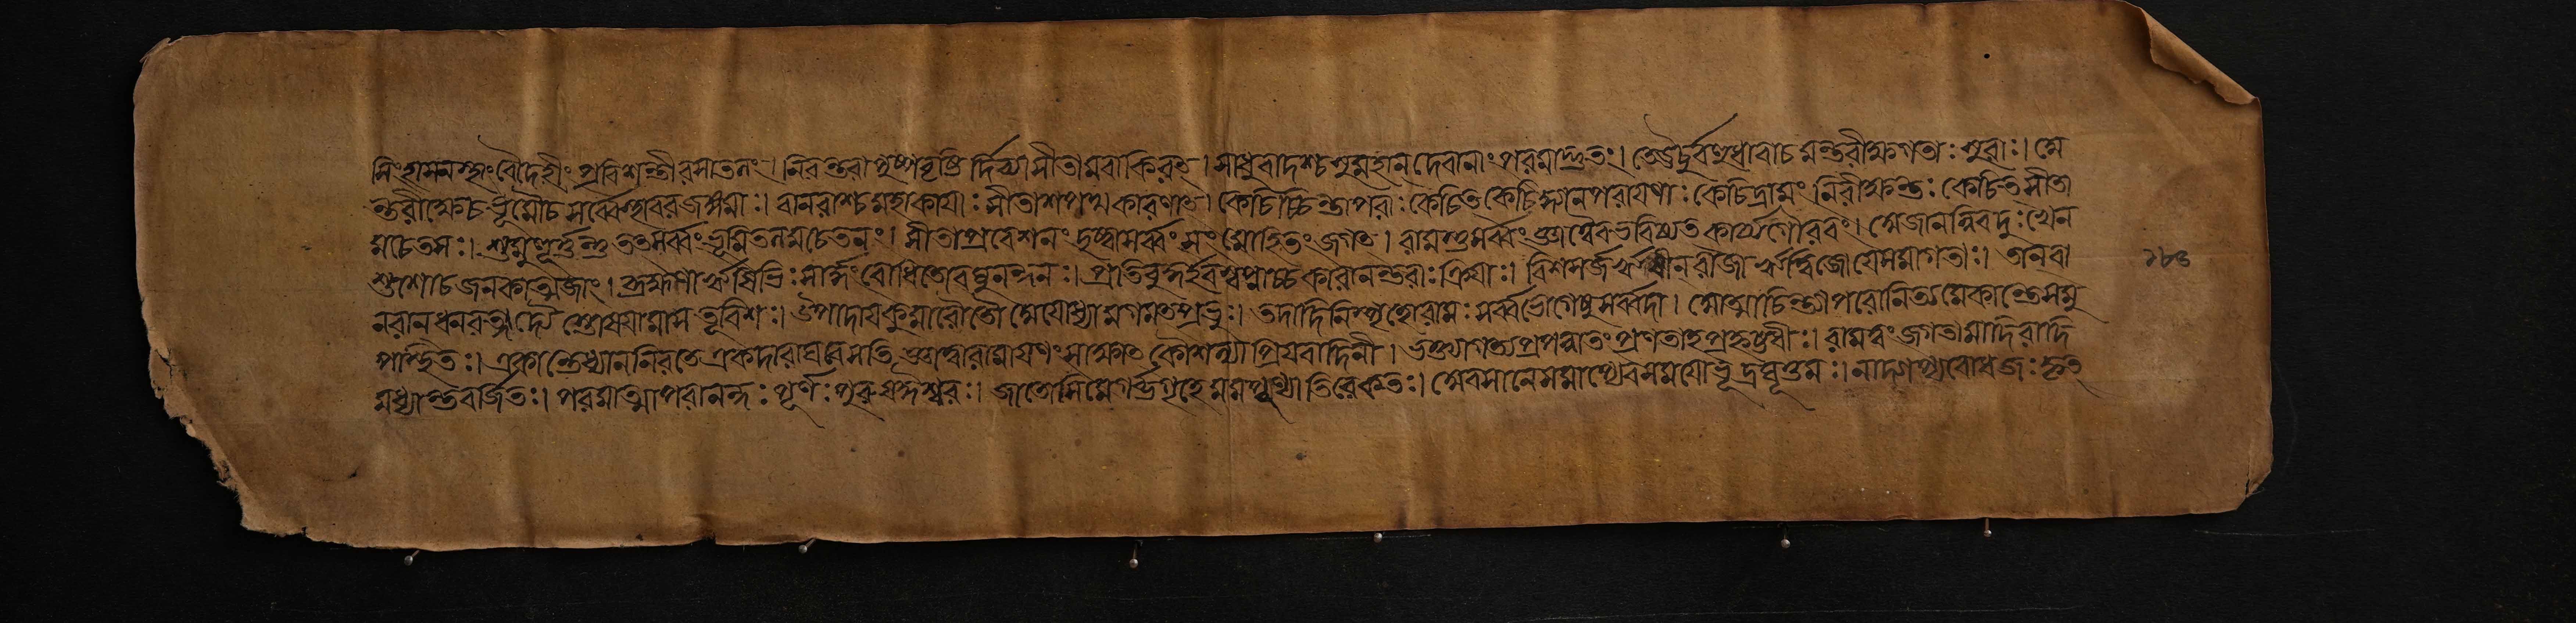 সিংহাসনস্থাং বৈদেহীং প্রবিশন্তীং রসাতলং । নিরন্তরা পুষ্পবৃষ্টি র্দিব্যা সীতামবাকিরৎ । সাধুবাদশ্চ সুমহান্ দেবানাং পরমাদ্ভুতঃ । ঊচুর্বহুধা বাচ মন্তরীক্ষগতাঃ সুরাঃ । অ
ন্তরীক্ষে চ ভূমৌ চ সর্ব্বে স্থাবরজঙ্গমাঃ । বানরাশ্চ মহাকায়াঃ সীতাশপথকারণাৎ । কেচিচ্চিন্তাপরাঃ কেচিৎ কেচিদ্ধ্যানপরায়ণাঃ কেচিদ্রামং নিরীক্ষন্তঃ কেচিৎ সীতা
মচেতসঃ । মুহূর্ত্তন্তু তৎ সর্ব্বং তূষ্ণিভূতমচেতনং । সীতাপ্রবেশনং দৃষ্ট্বা সর্ব্বং সংমোহিতং জগৎ । রামস্তু সর্ব্বং জ্ঞাত্বৈব ভবিষ্যৎ কার্য্যগৌরবং । অজানন্নিব দুঃখেন
শুশোচ জনকাত্মজাং । ব্রহ্মণা ঋষিভিঃ সার্দ্ধং বোধিতো রঘুনন্দনঃ । প্রতিবুদ্ধ ইব স্বপ্নাচ্চকারানন্তরাঃ ক্রিয়াঃ । বিসসর্জ ঋষীন্ রাজা ঋত্বিজো যে সমাগতাঃ । তান্ বা
নরান্ ধনরত্নাদ্যৈ স্তোষয়ামাস ভূরিশঃ । উপাদায় কুমারৌ তৌ অযোধ্যামগমৎ প্রভুঃ । তদাদি নিস্পৃহো রামঃ সর্ব্বভোগেষু সর্ব্বদা । আত্মচিন্তাপরো নিত্যমেকান্তে সমু
পস্থিতঃ । একান্তে ধ্যাননিরতে একদা রাঘবে সতি জ্ঞাত্বা নারায়ণং সাক্ষাৎ কৌশল্যা প্রিয়বাদিনী । ভক্ত্যাগত্য প্রসন্নং তং প্রণতা প্রাহ হৃষ্টধীঃ । রাম ত্বং জগতামাদিরাদি
মধ্যান্তবর্জিতঃ । পরমাত্মা পরানন্দঃ পূর্ণঃ পুরুষ ঈশ্বরঃ । জাতোসি মে গর্ভগৃহে মম পুণ্যাতিরেকতঃ । অবসানে মমাপ্যদ্য সময়োভূদ্রঘূত্তমঃ । নাদ্যাপ্যবোধজঃ কৃৎ